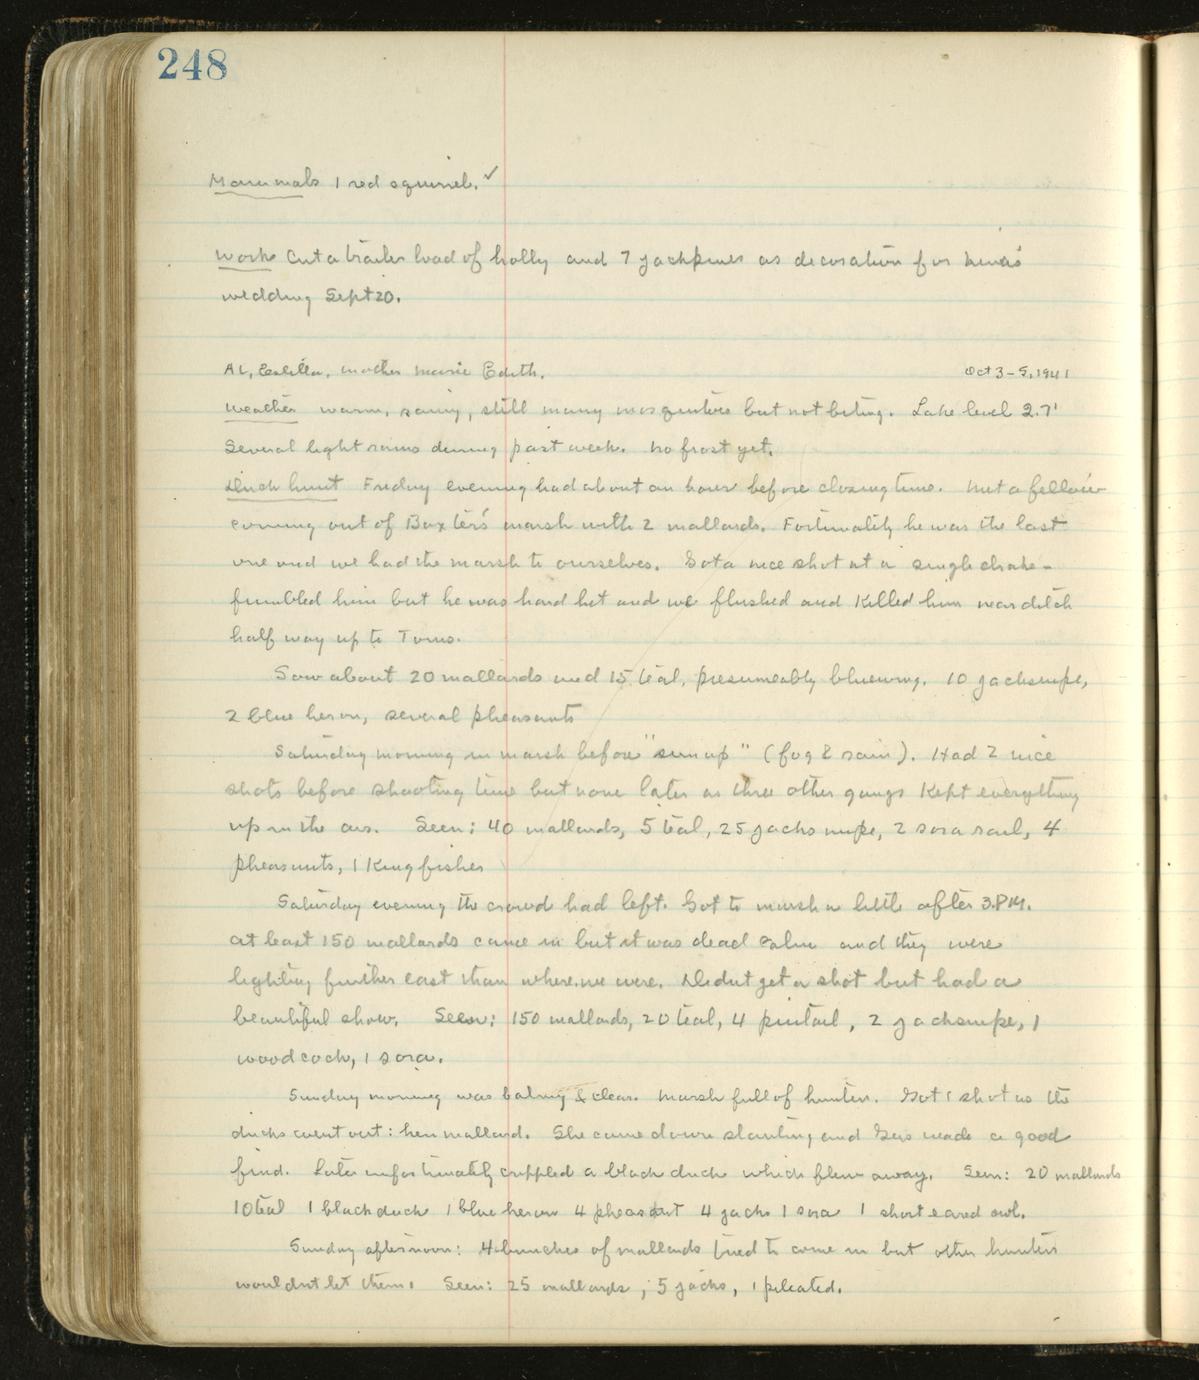 248
Mammals 1 red squirrel. ✓
Work Cut a trailer load of holly and 7 jackpines as decoration for Nina's
wedding Sept 20.
AL, Estella, mother Marie Edith. Oct 3-5, 1941
Weather warm, rainy, still many mosquitoes but not biting. Lake level 2.7'
Several light rains during past week. No frost yet.
Duck hunt Friday evening had about an hour before closing time. Met a fellow
coming out of Baxter's marsh with 2 mallards. Fortunately he was the last
one and we had the marsh to ourselves. Got a nice shot at a single drake -
fumbled him but he was hard hit and we flushed and killed him near ditch
half way up to Toms.
Saw about 20 mallards and 15 teal, presumeably bluewing. 10 jacksnipe,
2 blue heron, several pheasants
Saturday morning in marsh before "sun up" (fog & rain). Had 2 nice
shots before shooting time but none later as three other gangs kept everything
up in the air. Seen: 40 mallards, 5 teal, 25 jacksnipe, 2 sora rail, 4
pheasants, 1 Kingfisher
Saturday evening the crowd had left. Got to marsh a little after 3 P.M.
at least 150 mallards came in but it was dead calm and they were
lighting further east than where we were. Didnt get a shot but had a
beautiful show. Seen: 150 mallards, 20 teal, 4 pintail, 2 jacksnipe, 1
woodcock, 1 sora.
Sunday morning was balmy & clear. Marsh full of hunters. Got 1 shot as the
ducks went out: hen mallard. She came down slanting and Gus made a good
find. Later unfortunately crippled a black duck which flew away. Seen: 20 mallards
10 teal 1 black duck 1 blue heron 4 pheasant 4 jacks 1 sora 1 short eared owl.
Sunday afternoon: 4 bunches of mallards tried to come in but other hunters
wouldnt let them. Seen: 25 mallards, 5 jacks, 1 pileated.